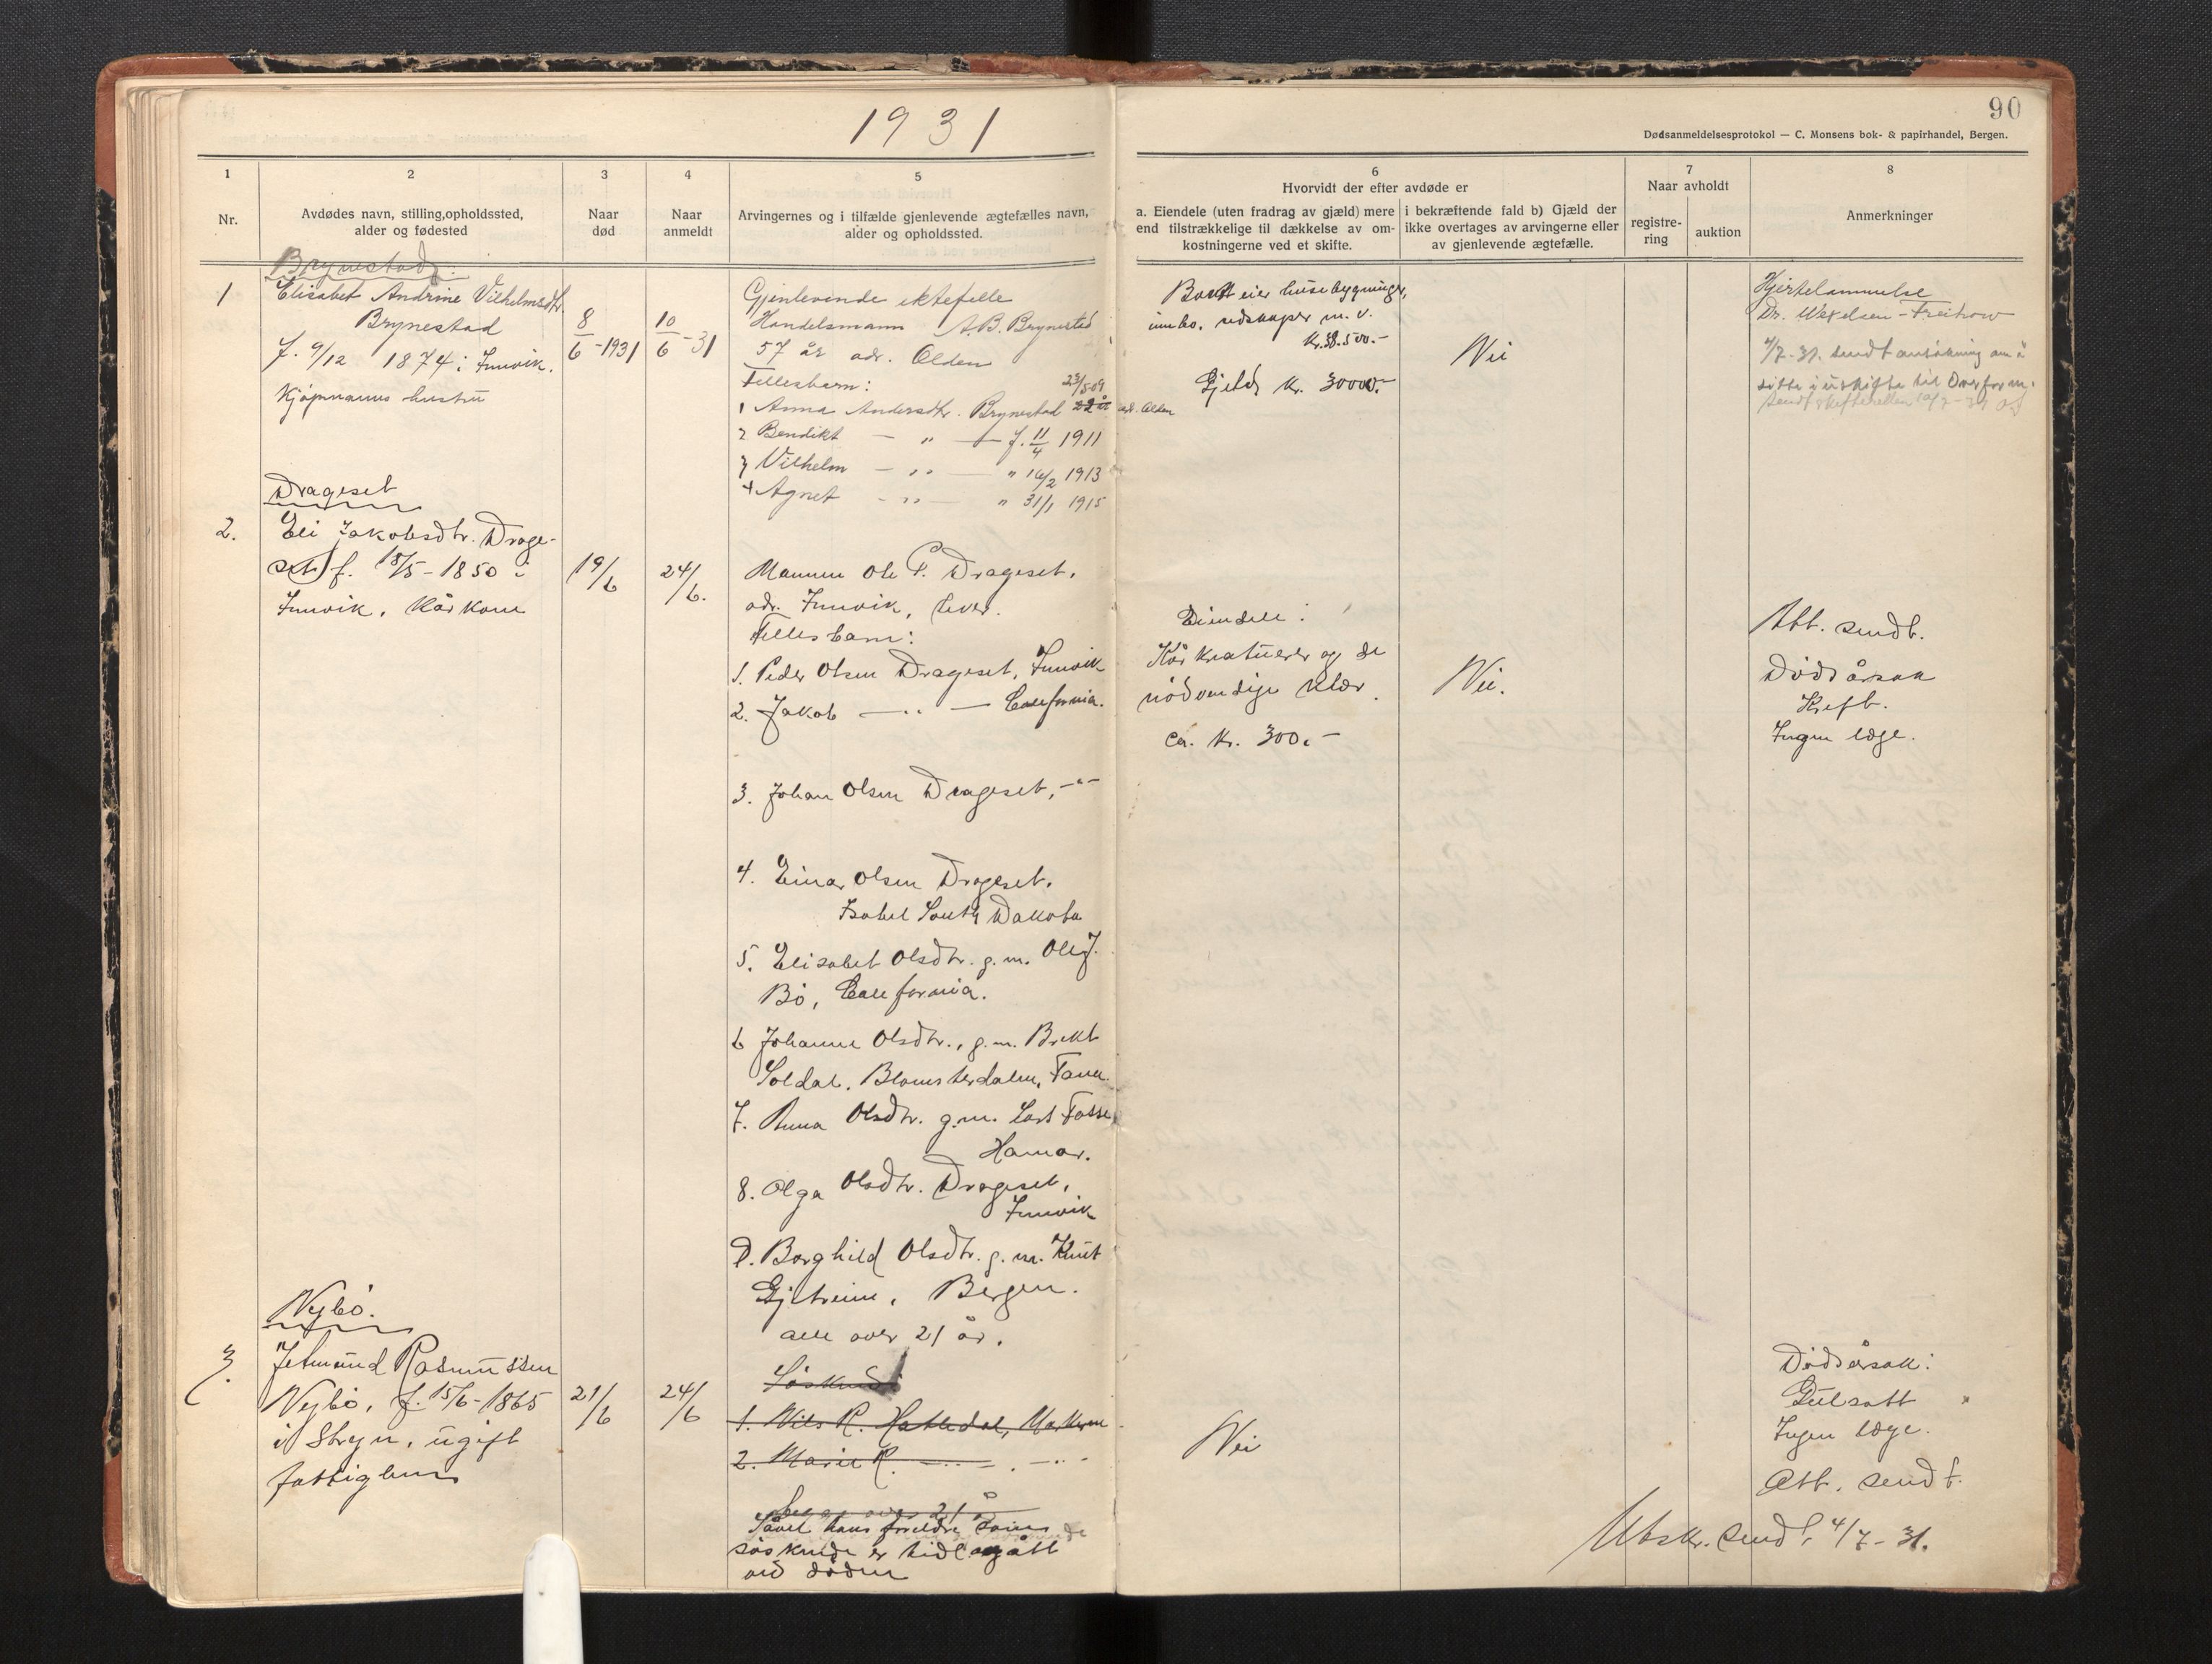 1931
90
Dødsanmeldelsesprotokol — C. Monsens bok- & papirhandel, Bergen.
1
2
3
4
5
6
7
8
Nr.
Avdødes navn, stilling, opholdssted,
alder og fødested
Naar
død
Naar
anmeldt
Arvingernes og i tilfælde gjenlevende ægtefælles navn,
alder og opholdssted.
Hvorvidt der efter avdøde er
a. Eiendele (uten fradrag av gjæld) mere
end tilstrækkelige til dækkelse av om-
kostningerne ved et skifte.
i bekræftende fald b) Gjæld der
ikke overtages av arvingerne eller
av gjenlevende ægtefælle.
Naar avholdt
registre-
ring
auktion
Anmerkninger
Brynestad.
1
Elisabet Andrine Vilhelmsdtr.
Brynestad
f. 9/12 1874 i Innvik.
Kjøpmanns hustru
8/6-1931
10/6-31
Gjenlevende ektefelle
Handelsmann A.B. Brynestad
57 år adr. Olden
Fellesbarn:
1 Anna Andersdtr. Brynestad 22 år 23/5-09 adr. Olden
2 Bendikt — " — f. 11/4 1911
3 Vilhelm — " — " 16/2 1913
4 Agnet — " — " 31/1 1915
Boet eier husebygninger,
innbo, redskaper m. v.
kr. 38.500.-
Gjeld kr. 30000.-
Nei
Hjertelammelse
4/7-31. sendt ansøkning om å
sitte i uskifte til Overform.
Drageset
2.
Eli Jakobsdtr. Drage-
set f. 18/5-1850 i
Innvik. Kårkone
19/6
24/6.
Mannen Ole P. Drageset.
adr. Innvik, lever.
Fellesbarn:
1. Peder Olsen Drageset, Innvik
2. Jakob — " — California.
3. Johan Olsen Drageset, -"-
4. Einar Olsen Drageset.
Isabel South Dakota
5. Elisabet Olsdtr. g.m. Ole J.
Bø, California.
6 Johanne Olsdtr., g.m. Brikt
Soldal. Blomsterdalen, Fana.
7. Anna Olsdtr. g.m. Lars Fosse
Hamar.
8. Olga Olsdtr. Drageset,
Innvik
9. Borghild Olsdtr. g.m. Knut
Gjetreim, Bergen.
alle over 21 år.
Eiendele:
Kårkreaturer og de
nødvendige klær.
ca. kr. 300.-
Nei.
Att. sendt.
Dødsårsak
Kreft.
Ingen læge.
Nybø.
3.
Jetmund Rasmussen
Nybø, f. 15/6-1865
i Stryn, ugift
fattiglem
21/6
24/6
Søskend
1. Nils R. Hatledal, Markane
2. Marie R. — " — . — " —
begge over 21 å
Såvel hans foreldre som
søskende er tidl. avgått
ved døden
Nei
Dødsårsak:
Gulsott
Ingen læge.
Att. sendt.
Utskr. sendt 4/7-31.